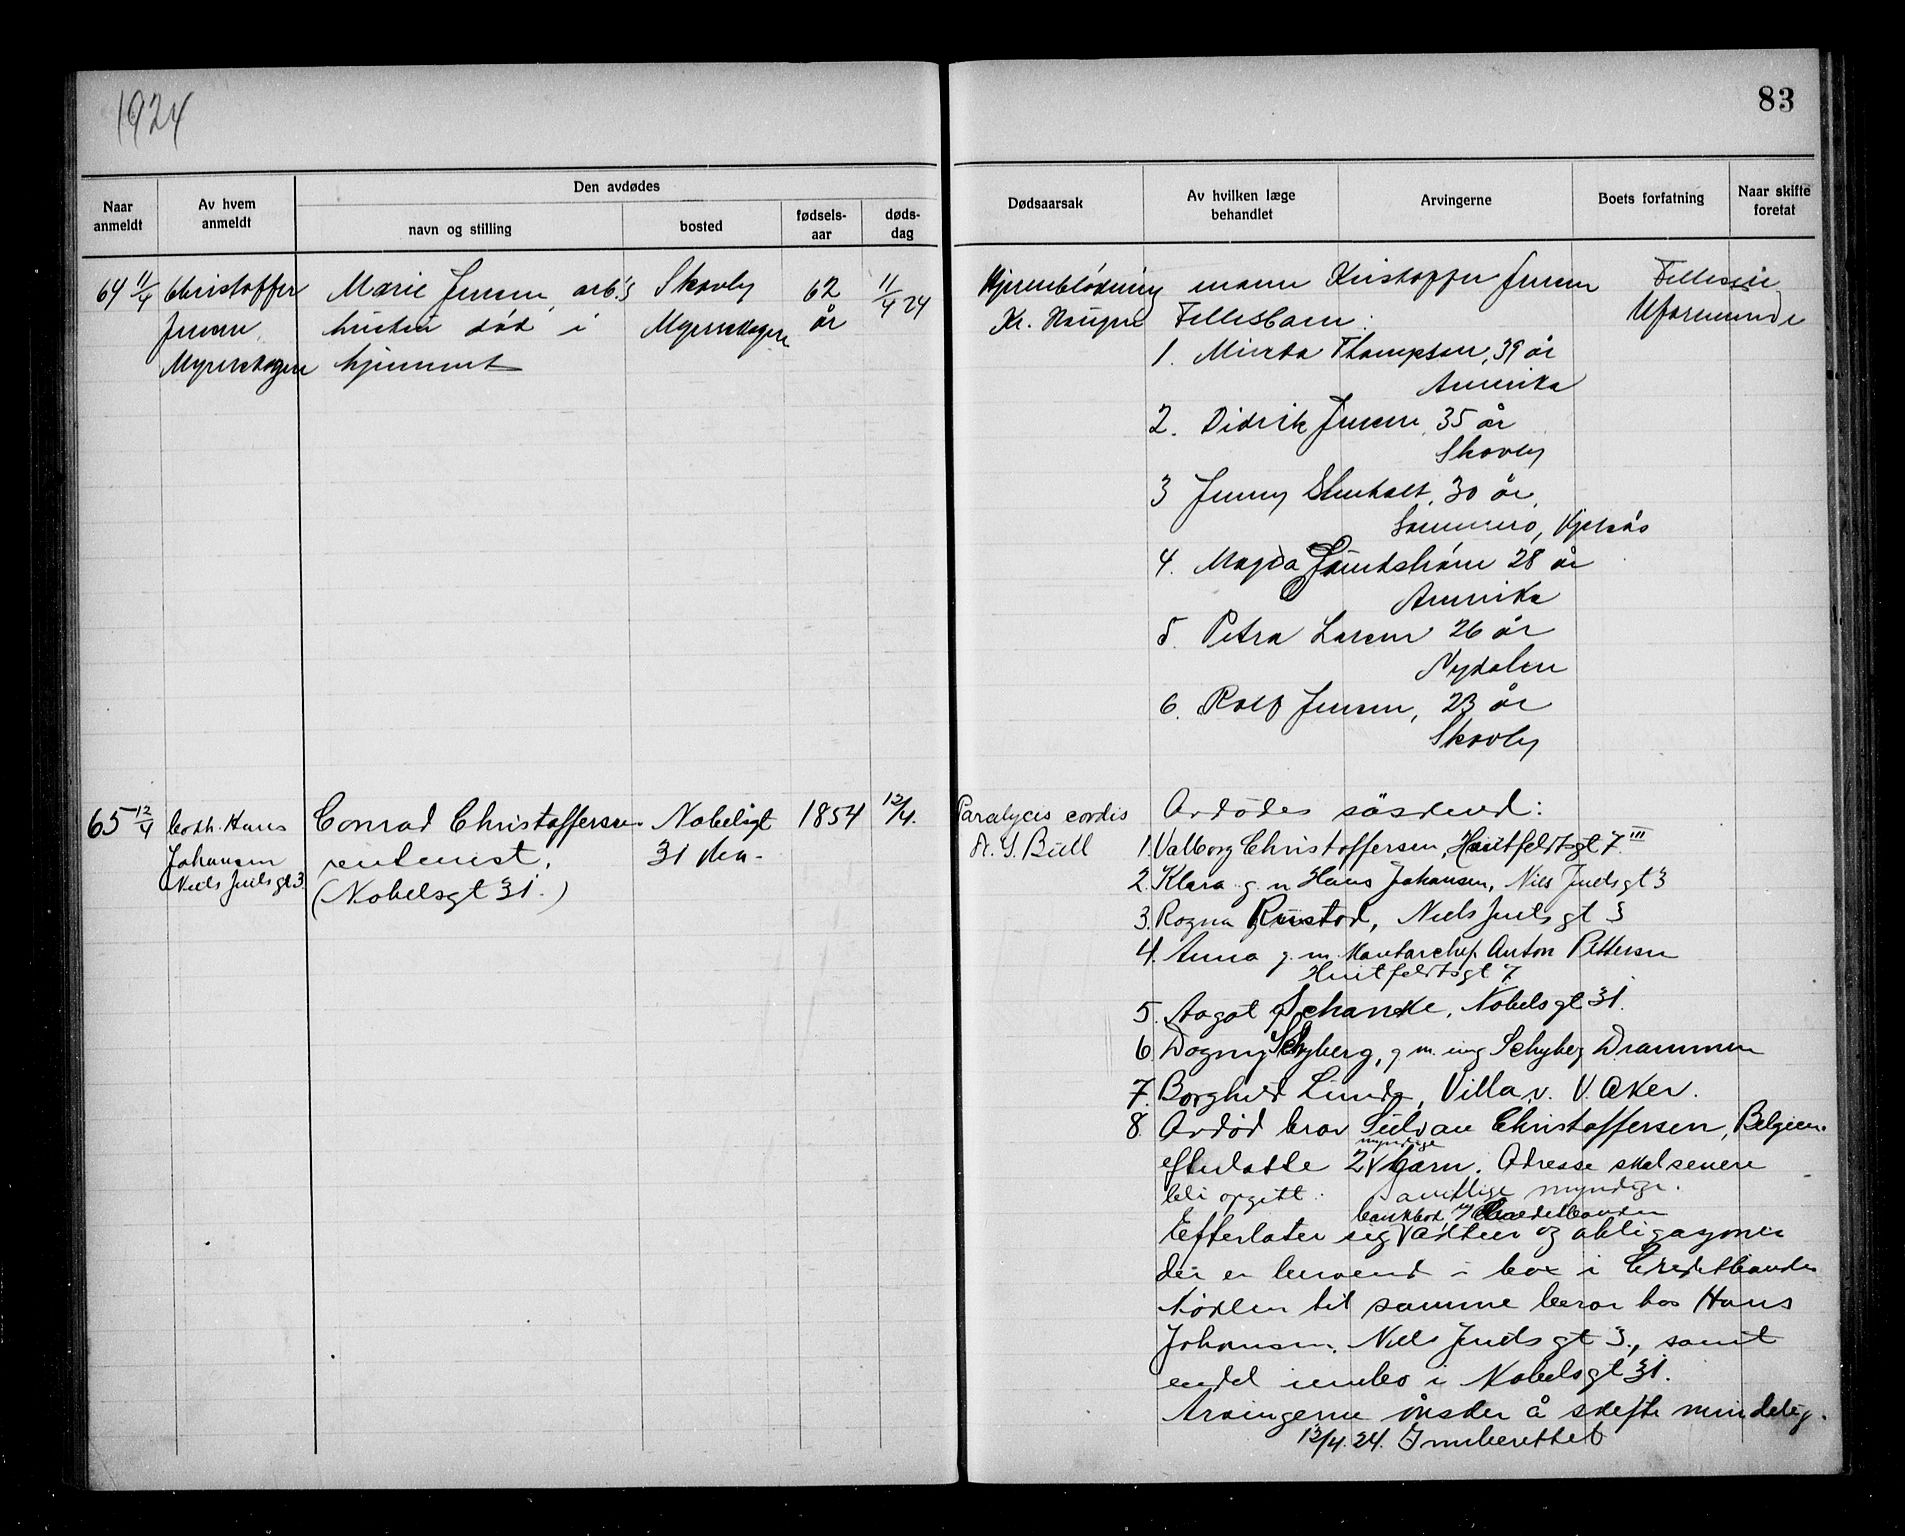 1924
83
Naar anmeldt
Av hvem anmeldt
Den avdødes
navn og stilling
bosted
fødsels-aar
døds-dag
Dødsaarsak
Av hvilken læge behandlet
Arvingerne
Boets forfatning
Naar skifte foretat
64 11/4 Christoffer Marie Jensen, arb.s Skovly 62 11/4 24
Jensen, hustru død i Myrerskogen år
Myrerskogen hjemmet
Hjerneblødning mann Kristoffer Jensen Felleseie
Kr. Haugen Fellesbarn: Uformuende
1. Thompson, 39 år
Amerika
2. Didrik Jensen, 35 år
Skovly
3 Jenny Stenholt, 30 år,
Sommerro, Kjelsås
4. Magda Lundstrøm 28 år
Amerika
5. Petra Larsen 26 år
Nydalen
6. Rolf Jensen, 23 år
Skovly
65 12/4 Hans Conrad Christoffersen Nobelsgt 1854 12/4.
Johansen rentenist, 31
Niels Juels gt 3. (Nobelsgt 31.)
Paralycis cordis Avdødes søskend:
Dr. G. Bull 1. Valborg Christoffersen, Huitfeldtsgt 7. III
2. Klara g. m Hans Johansen, Nils Juels gt 3
3. Ragna Rustad, Niels Juels gt 3
4. Anna g. m. Anton Pettersen
Huitfeldtsgt 7.
5. Aagot Schanke, Nobelsgt 31.
6. Dagny Schyberg, g. m. ing Schyberg Drammen
7. Borghild Linda, Villa v. V. Aker.
8. Avdød bror Christoffersen, Belgien.
myndige
efterlatte 2 v barn. Adresse skal senere
bli opgitt. samtlige myndige.
bankbok i Creditbanken
Efterlater sig v aktier og obligasjoner
der er beroend i box i Creditbanken
Nøklen til samme beror hos Hans
Johansen, Niels Juels gt 3., samt
endel innbo i Nobelsgt 31.
Arvingerne ønsker å skifte mindelig.
12/4. 24. Innberettet